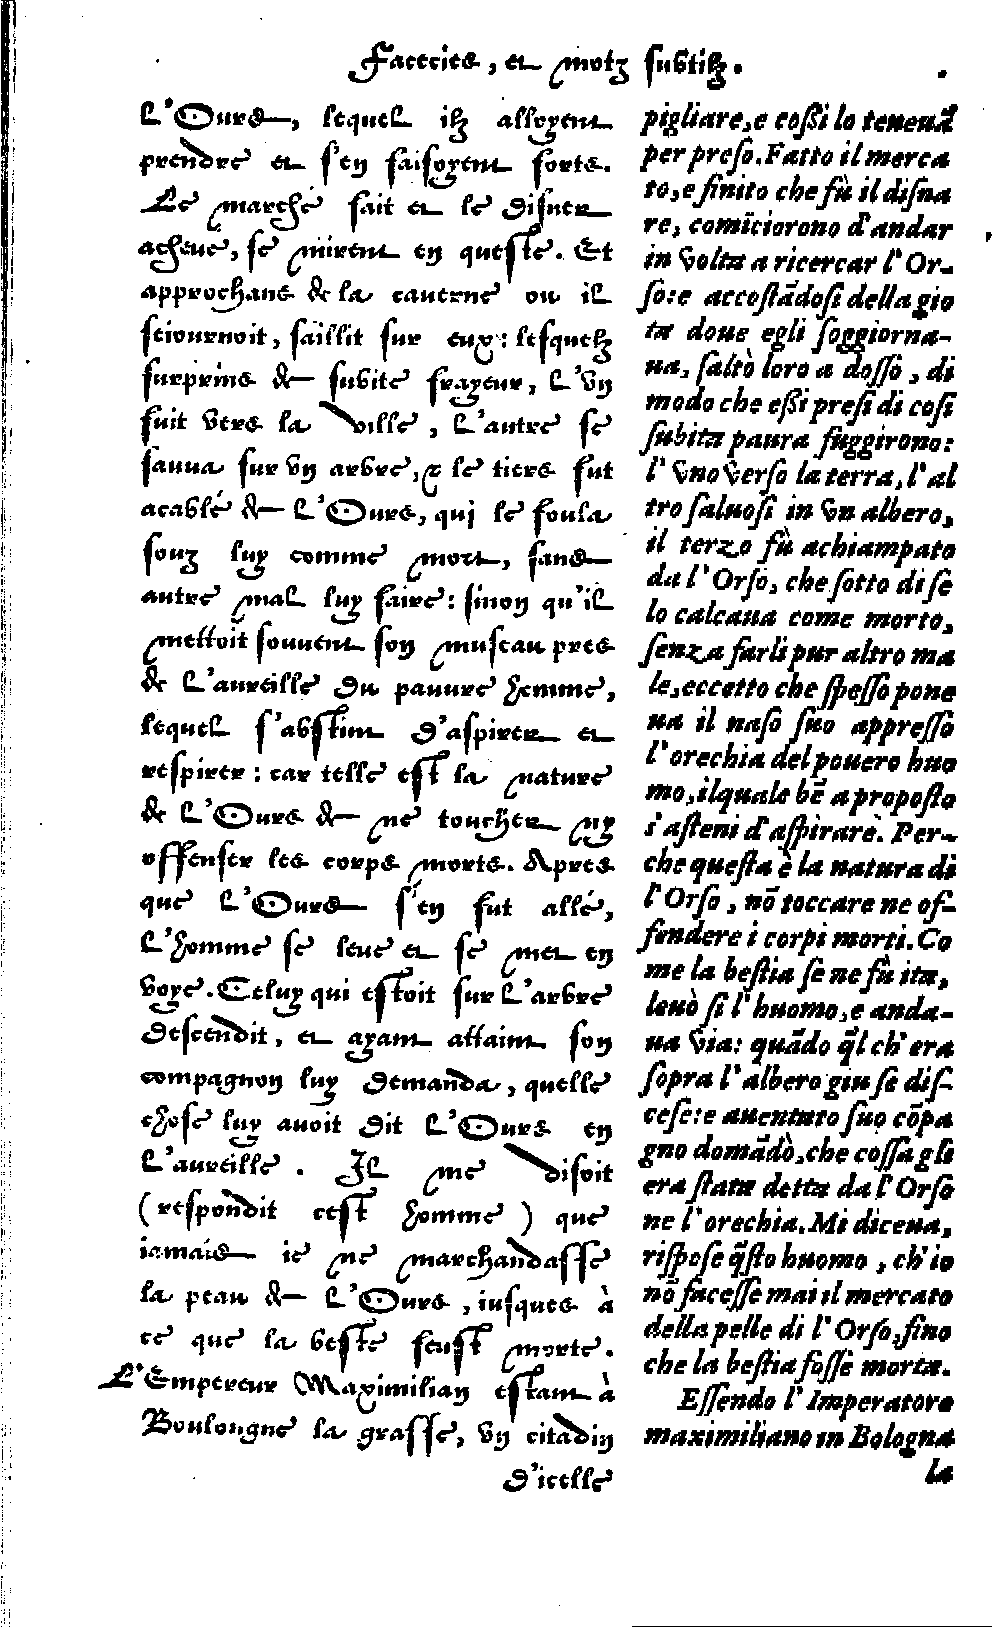 Facecies, et motz subtilz.
L'Ours, lequel ilz alloyent
prendre et s'en faisoyent forts.
Le marché fait et le disner
acheué, se mirent en queste. Et
approchans de la cauerne ou il
seiournoit, saillit sur eux: lesquelz
surprins de subite frayeur, l'vn
fuit vers la ville, l'autre se
sauua sur vn arbre, & le tiers fut
acablé de l'Ours, qui le foula
souz luy comme mort, sans
autre mal luy faire: sinon qu'il
mettoit souuent son museau pres
de l'aureille du pauure homme,
lequel s'abstint d'aspirer et
respirer: car telle est la nature
de l'Ours de ne toucher ny
offenser les corps morts. Apres
que l'Ours s'en fut allé,
l'homme se leue et se met en
voye. Celuy qui estoit sur l'arbre
descendit, et ayant attaint son
compagnon luy demanda, quelle
chose luy auoit dit l'Ours en
l'aureille. Il me disoit
(respondit cest homme) que
iamais ie ne marchandasse
la peau de l'Ours, iusques à
ce que la beste feust morte.
L'Empereur Maximilian estant à
Boulongne la grasse, vn citadin
d'icelle
pigliare, e coßi lo teneuā
per preso. Fatto il merca
to, e finito che fù il disna
re, comīciorono d'andar
in volta a ricercar l'Or-
so: e accostādosi della gio
ta doue egli soggiorna-
ua, saltò loro a dosso, di
modo che eßi presi di cosi
subita paura fuggirono:
l'vno verso la terra, l'al
tro saluosi in vn albero,
il terzo fù achiampato
da l'Orso, che sotto di se
lo calcaua come morto,
senza farli pur altro ma
le, eccetto che spesso pone
ua il naso suo appresso
l'orechia del pouero huo
mo, ilquale bē a proposto
s'asteni d'aspirare. Per-
che questa è la natura di
l'Orso, nō toccare ne of-
fendere i corpi morti. Co
me la bestia se ne fù ita,
leuò si l'huomo, e anda-
ua via: quādo q̄l ch'era
sopra l'albero giu se dis-
cese: e auentato suo cōpa
gno domādò, che cossa gli
era stata detta da l'Orso
ne l'orechia. Mi diceua,
rispose q̄sto huomo, ch'io
nō facesse mai il mercato
della pelle di l'Orso, fino
che la bestia fosse morta.
Essendo l'Imperatore
maximiliano in Bologna
la